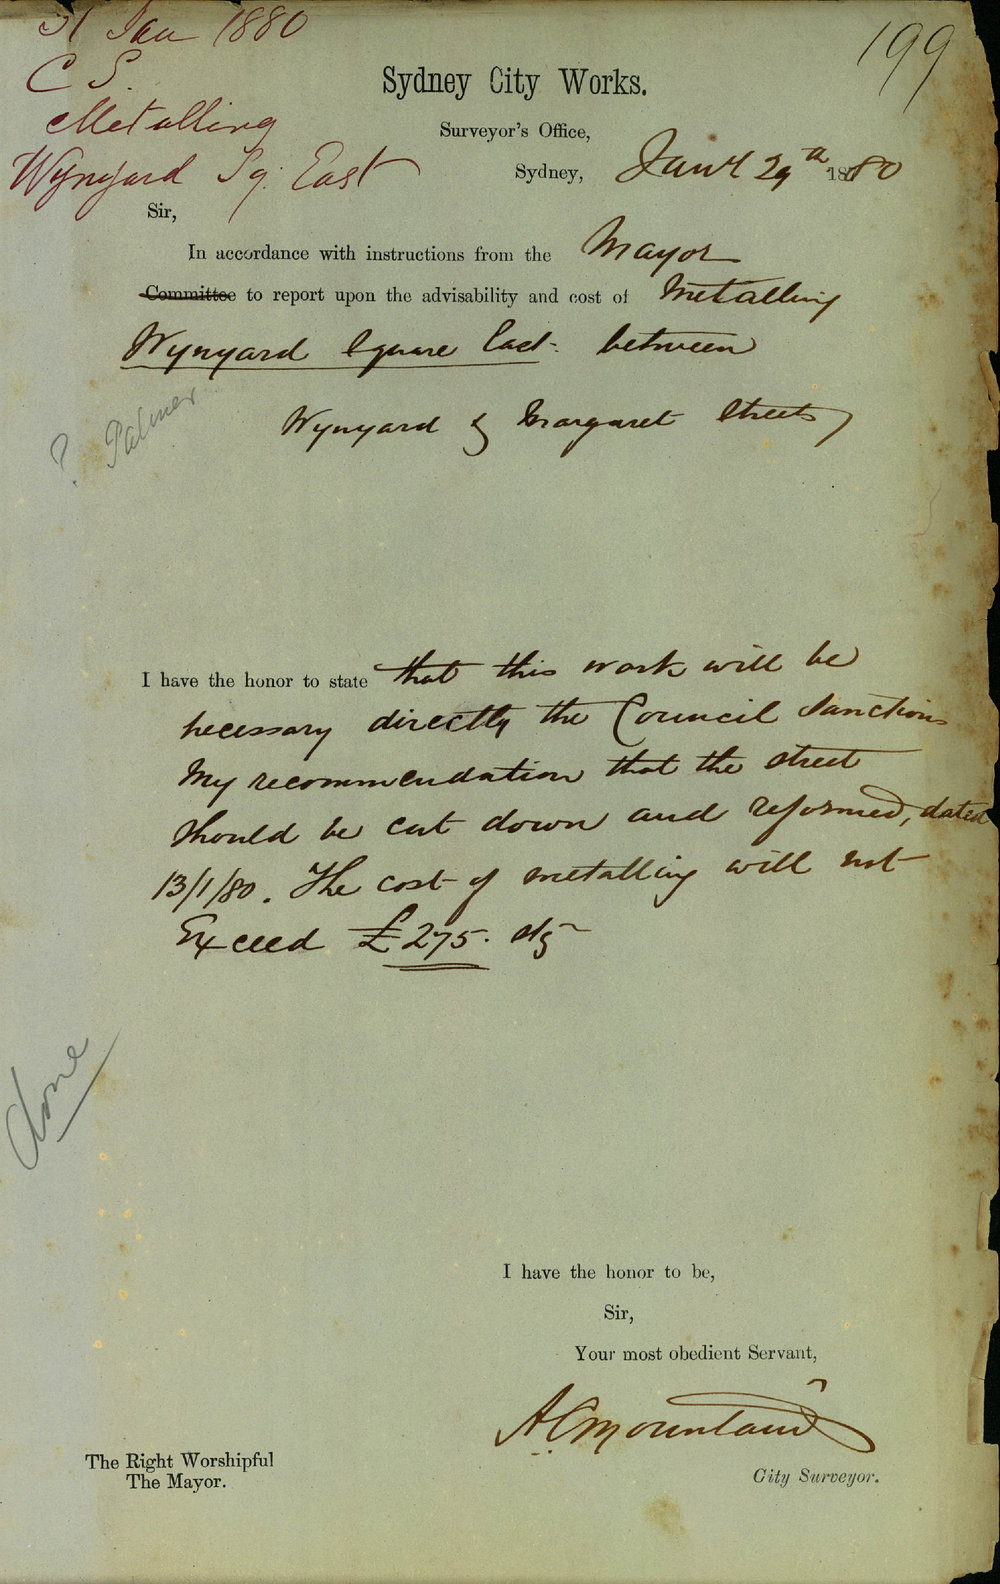 31 Jan 1880
199
C S.
Metalling
Wynyard Sq. East
Sydney City Works.
Surveyor's Office,
Sydney, Jany 29th 1880
Sir,
In accordance with instructions from the Mayor
Committee to report upon the advisability and cost of Metalling
Wynyard Square East. between
Wynyard & Margaret Streets,
? Palmer
I have the honor to state that this work will be
necessary directly the Council sanctions
my recommendation that the street
should be cut down and reformed, dated
13/1/80. The cost of metalling will not
Exceed £275. stg
done
I have the honor to be,
Sir,
Your most obedient Servant,
A C Mountain
City Surveyor.
The Right Worshipful
The Mayor.